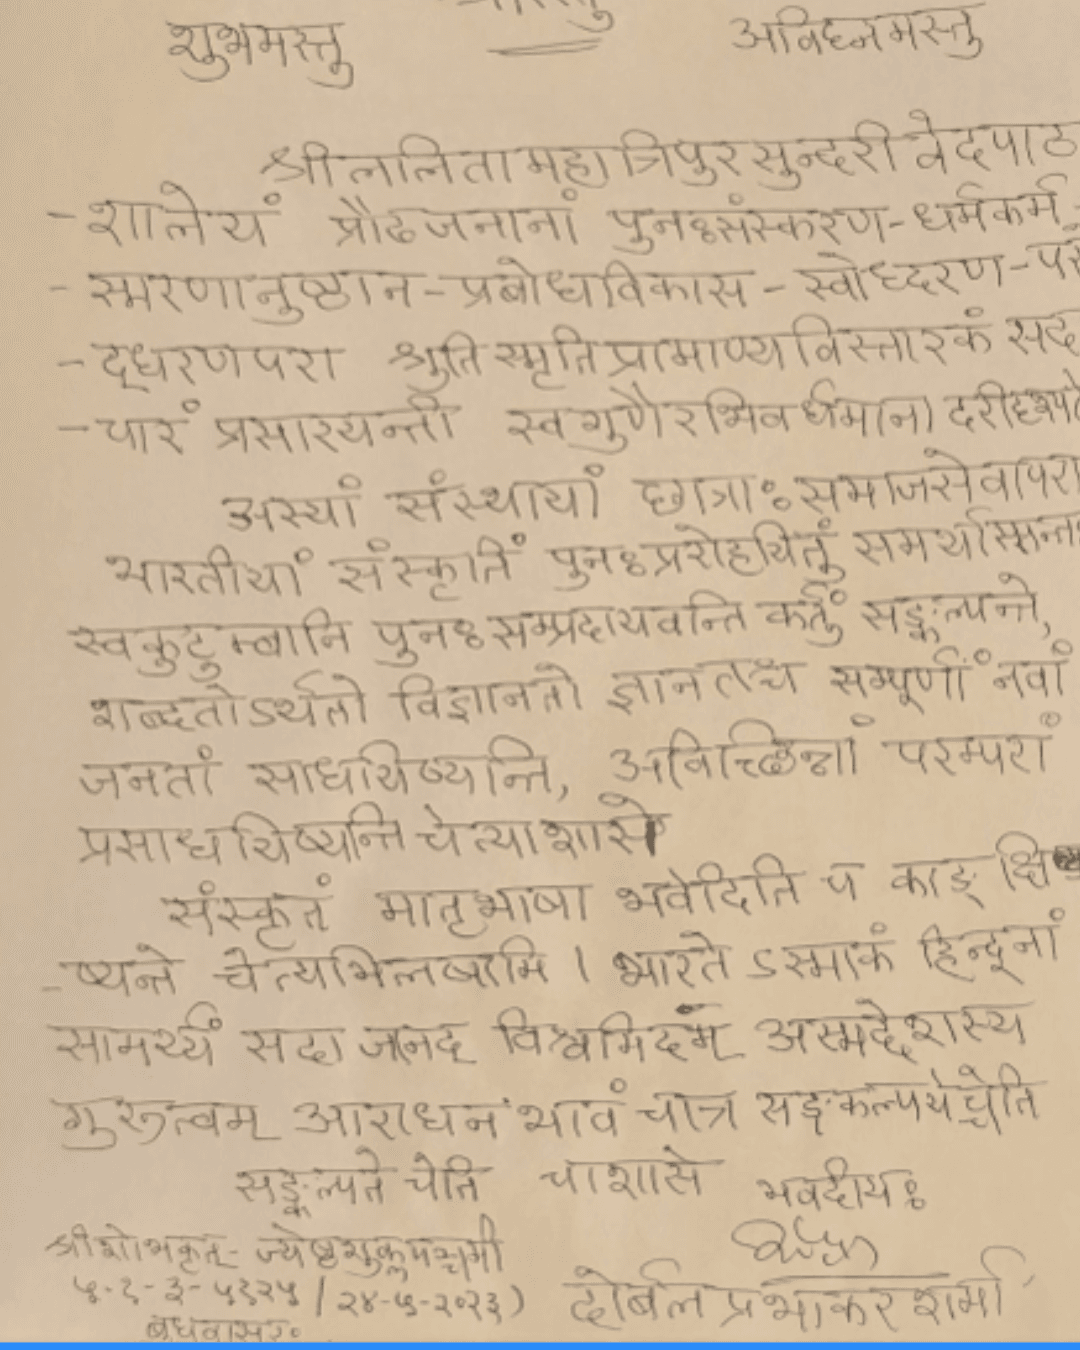 शुभमस्तु अविघ्नमस्तु
श्रीललितामहात्रिपुरसुन्दरी वेदपाठ
-शालेयं प्रौढजनानां पुनःसंस्करण-धर्मकर्म-
-स्मरणानुष्ठान-प्रबोधविकास-स्वोध्दरण-परो
-द्धरणपरा श्रुतिस्मृतिप्रामाण्यविस्तारकं सदा
-चारं प्रसारयन्ती स्वगुणैरभिवर्धमाना दरीदृश्यते
अस्यां संस्थायां छात्राः समाजसेवापरा
भारतीयां संस्कृतिं पुनःप्ररोहयितुं समर्थास्सन्तः
स्वकुटुम्बानि पुनःसम्प्रदायवन्ति कर्तुं सङ्कल्पन्ते,
शब्दतोऽर्थतो विज्ञानतो ज्ञानतश्च सम्पूर्णां नवां
जनतां साधयिष्यन्ति, अविच्छिन्नां परम्परां
प्रसाधयिष्यन्ति चेत्याशासे
संस्कृतं मातृभाषा भवेदिति च काङ्क्षि
-ष्यन्ते चेत्यभिलषामि । भारतेऽस्माकं हिन्दूनां
सामर्थ्यं सदा विश्वमिदम् अस्मद्देशस्य
गुरुत्वम् आराधनभावं चात्र सङ्कल्पयेच्चेति
सङ्कल्पते चेति चाशासे भवदीयः
श्रीशोभकृत्- ज्येष्ठशुक्लपञ्चमी
५-१-३-५१२५ / (२४-५-२०२३) दोर्बल प्रभाकर शर्मा
बुधवासरः